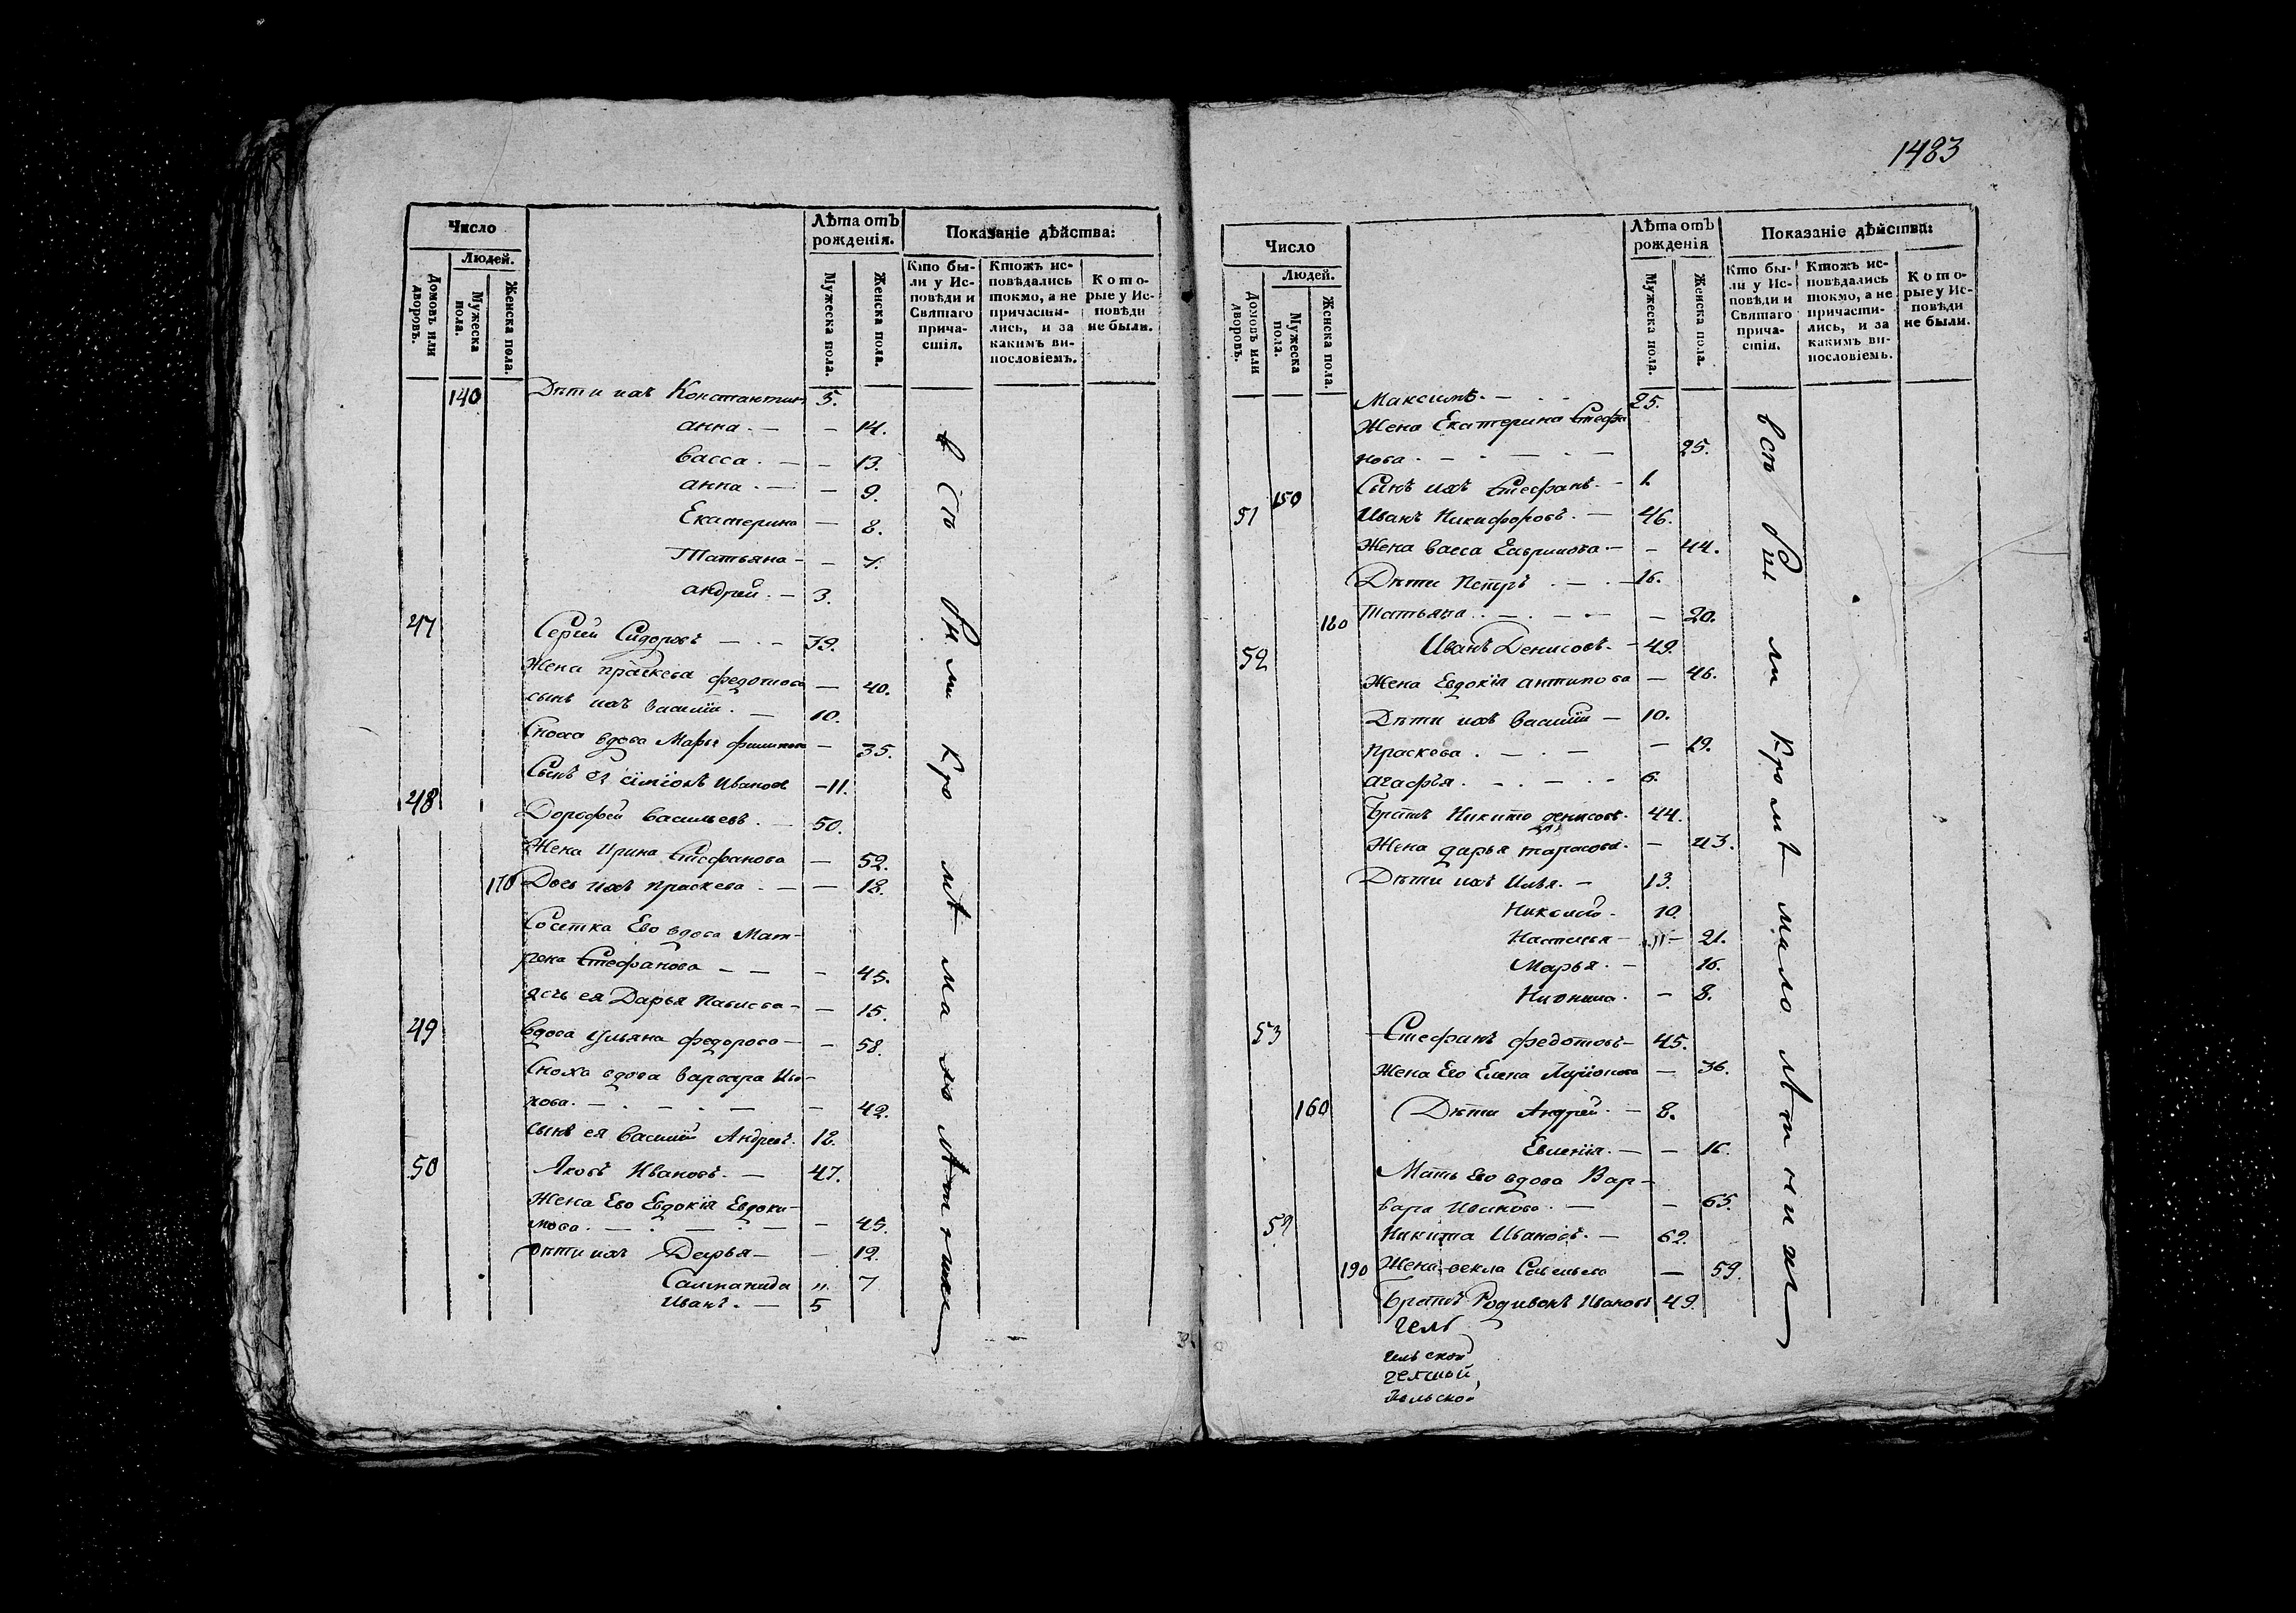 Число
Людей.
Домовъ или дворовъ.
Мужеска пола.
Женска пола.
Лѣта отъ рожденія.
Мужеска пола.
Женска пола.
Показаніе дѣйства:
Кто бы-
ли у Ис-
повѣди и
Святаго
прича-
стія.
Ктожъ ис-
повѣдались
токмо, а не
причасти-
лись, и за
какимъ ви-
нословіемъ.
Кото-
рые у Ис-
повѣди
не были.
140 Дѣти ихъ Константинъ 5.
анна. — — 14.
васса. — — 13.
анна. — — 9.
Екатерина — 8.
Татьяна — — 7.
андрей. — 3.
47 Сергей Сидоровъ — - - 39.
Жена праскева федотова — 40.
сынъ ихъ василій. — 10.
Сноха вдова Марья — 35.
Сынъ ея Ивановъ — 11.
48 Дорофей васильевъ. — 50.
Жена Ирина Стефанова — 52.
170 Дочь ихъ праскева — — 18.
Ево вдова Мат-
рена Стефанова — — - 45.
дочь ея Дарья — — 15.
49 вдова Ульяна федорова — — 58.
Сноха вдова варвара Ива-
нова. — . — . — — 42.
сынъ ея василій Андреевъ. 18.
50 Яковъ Ивановъ. — 47.
Жена Ево Евдокія Евдоки-
мова. — . — . — — 45.
дѣти ихъ Дарья — — 12.
Саломанида „ 7
Иванъ. — 5
всѣ были кромѣ малолѣтнихъ
1483
Число
Людей.
Домовъ или дворовъ.
Мужеска пола.
Женска пола.
Лѣта отъ рожденія
Мужеска пола.
Женска пола.
Показаніе дѣйства:
Кто бы-
ли у Ис-
повѣди и
Святаго
прича-
стія.
Ктожъ ис-
повѣдались
токмо, а не
причасти-
лись, и за
какимъ ви-
нословіемъ.
Кото-
рые у Ис-
повѣди
не были.
Максимъ. — - - 25.
Жена Екатерина Стефа
нова. — . — . — 25.
150 Сынъ ихъ Стефанъ. — 1.
51 Иванъ Никифоровъ. — 46.
Жена васса Гаврилова. — - 44.
Дѣти Петръ . — . — 16.
180 Татьяна . — . — — 20.
52 Иванъ Денисовъ. — 49.
Жена Евдокія антипова — 46.
Дѣти ихъ василій — 10.
праскева . — . — — 19.
агафья. — . — - 6.
братъ Никита денисовъ. 44.
Жена дарья тарасова. — 43.
Дѣти ихъ Илья. — 13.
Николай. 10.
Настасья — „ — 21.
Марья. — 16.
— 8.
53 Стефанъ федотовъ — 45.
Жена Его Елена — 36.
160 Дѣти Андрей. — 8.
Евгенія. — — 16.
Мать Ево вдова Вар-
вара Иванова. — — 65.
Никита Ивановъ. — 62.
190 Жена фекла Савельева — 59.
братъ Родивонъ Ивановъ 49.